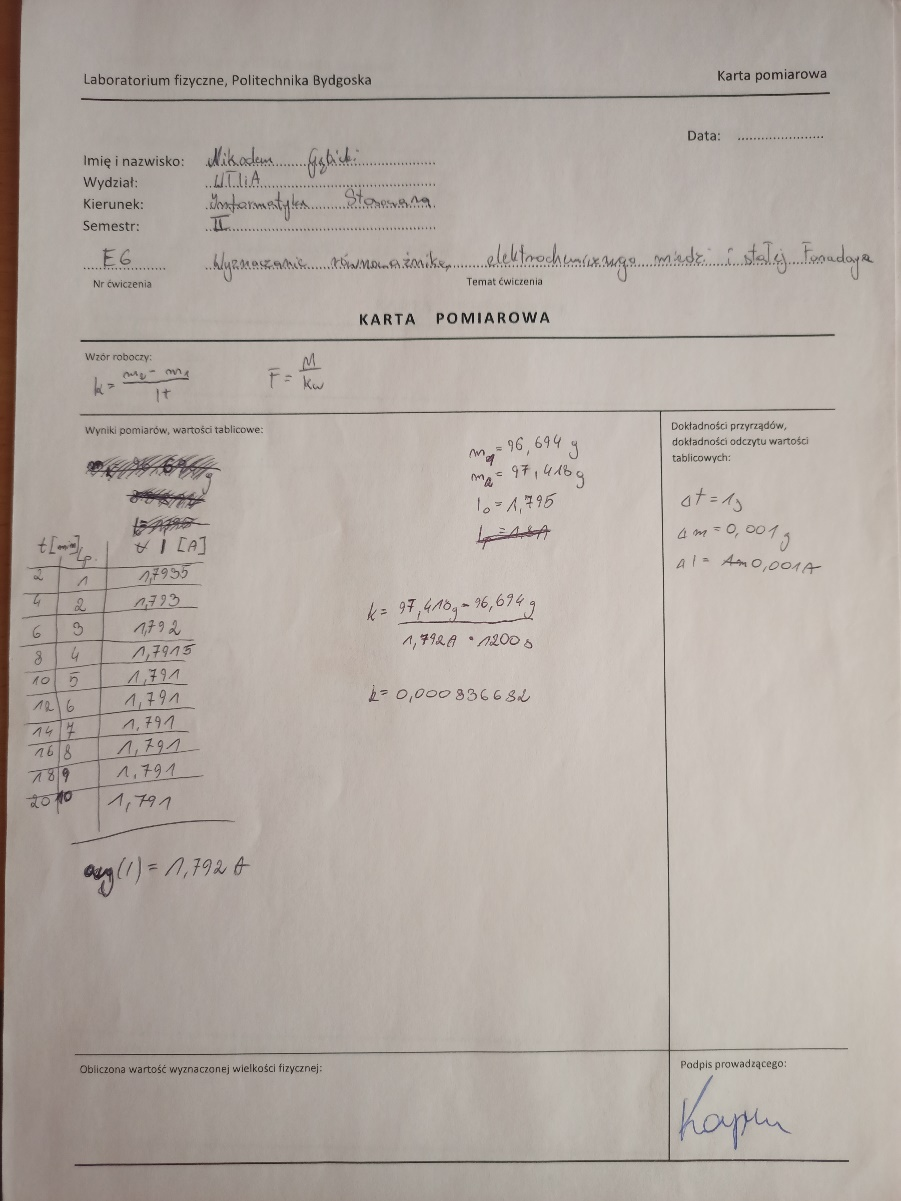 Laboratorium fizyczne, Politechnika Bydgoska
Karta pomiarowa
Data: ......................
Imię i nazwisko: Nikodem
Wydział: WTIiA
Kierunek: Informatyka Stosowana
Semestr: II
E6 Wyznaczanie równoważnika elektrochemicznego miedzi i stałej Faradaya
Nr ćwiczenia Temat ćwiczenia
KARTA POMIAROWA
Wzór roboczy:
k = m₂ - m₁ / It F = M / kw
Wyniki pomiarów, wartości tablicowe:
m₁ = 96,694 g
m₂ = 97,418 g
I₀ = 1,795
t[min] Lp. I [A]
2 1 1,7935
4 2 1,793
6 3 1,792
8 4 1,7915
10 5 1,791
12 6 1,791
14 7 1,791
16 8 1,791
18 9 1,791
20 10 1,791
avg(I) = 1,792 A
k = 97,418g - 96,694 g / 1,792A · 1200 s
k = 0,000336682
Dokładności przyrządów,
dokładności odczytu wartości
tablicowych:
Δt = 1s
Δm = 0,001 g
ΔI = 0,001A
Obliczona wartość wyznaczonej wielkości fizycznej:
Podpis prowadzącego: